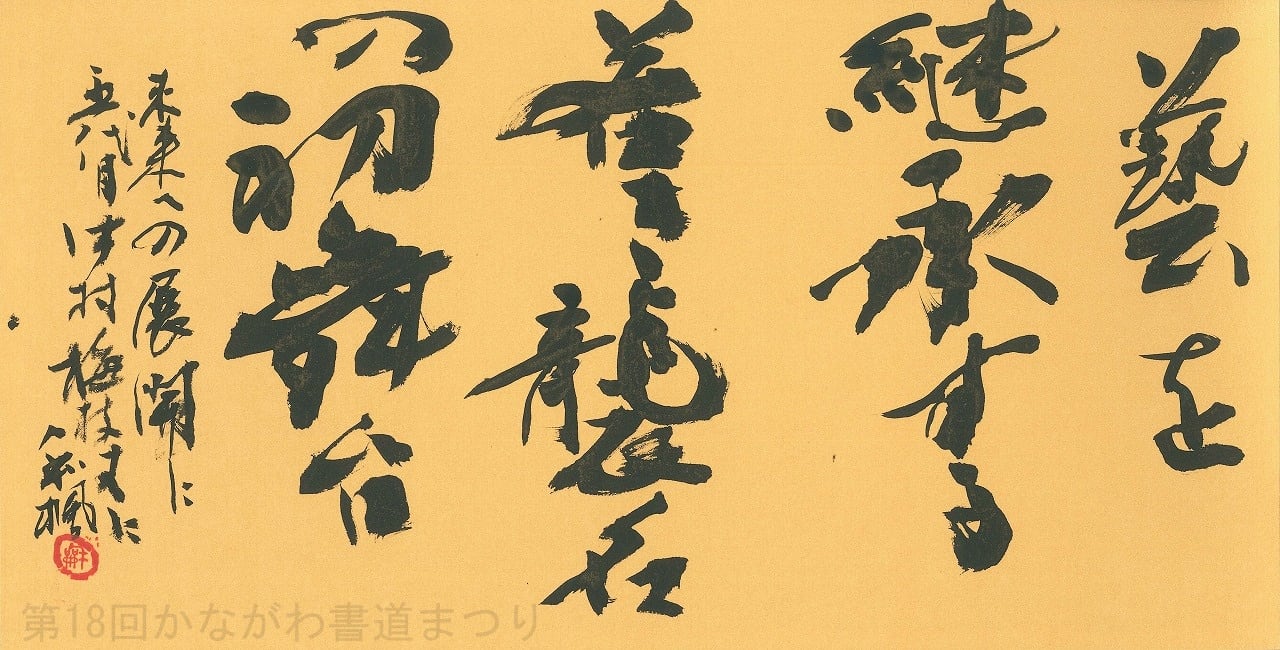 藝を
継承する
着到襲名
の初舞台
未来への展開に
五代目中村梅枝丈に
第18回かながわ書道まつり